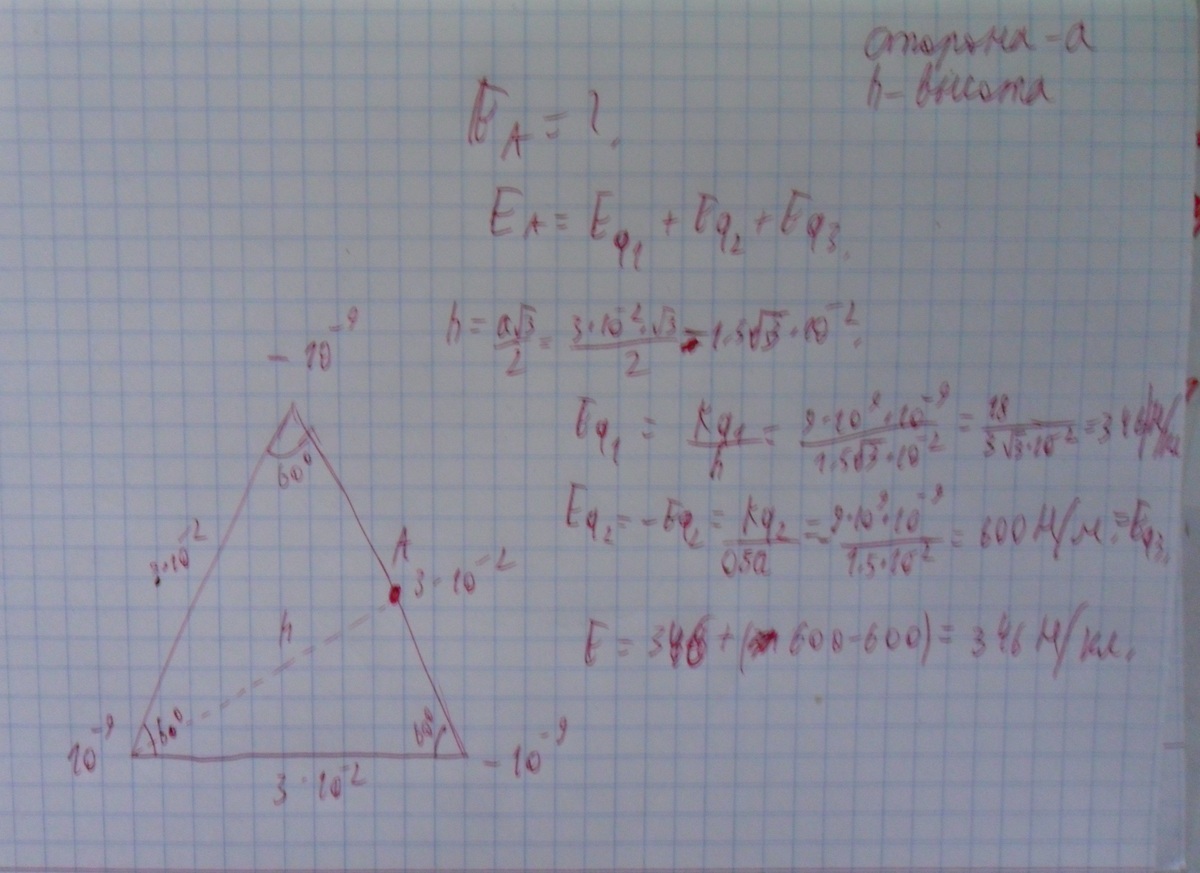 сторона - a
h - высота
E_A = ?
E_A = E_q1 + E_q2 + E_q3.
h = a√3/2 = 3·10^-2·√3/2 = 1.5√3·10^-2.
-10^-9
E_q1 = kq1/h = 9·10^9·10^-9/1.5√3·10^-2 = 18/3√3·10^-2 = 346 Н/Кл
60°
E_q2 = -E_q2 = kq2/0.5a = 9·10^9·10^-9/1.5·10^-2 = 600 Н/м. = E_q3.
3·10^-2
A
3·10^-2
h
E = 346 + (600-600) = 346 Н/Кл.
10^-9
60°
60°
-10^-9
3·10^-2